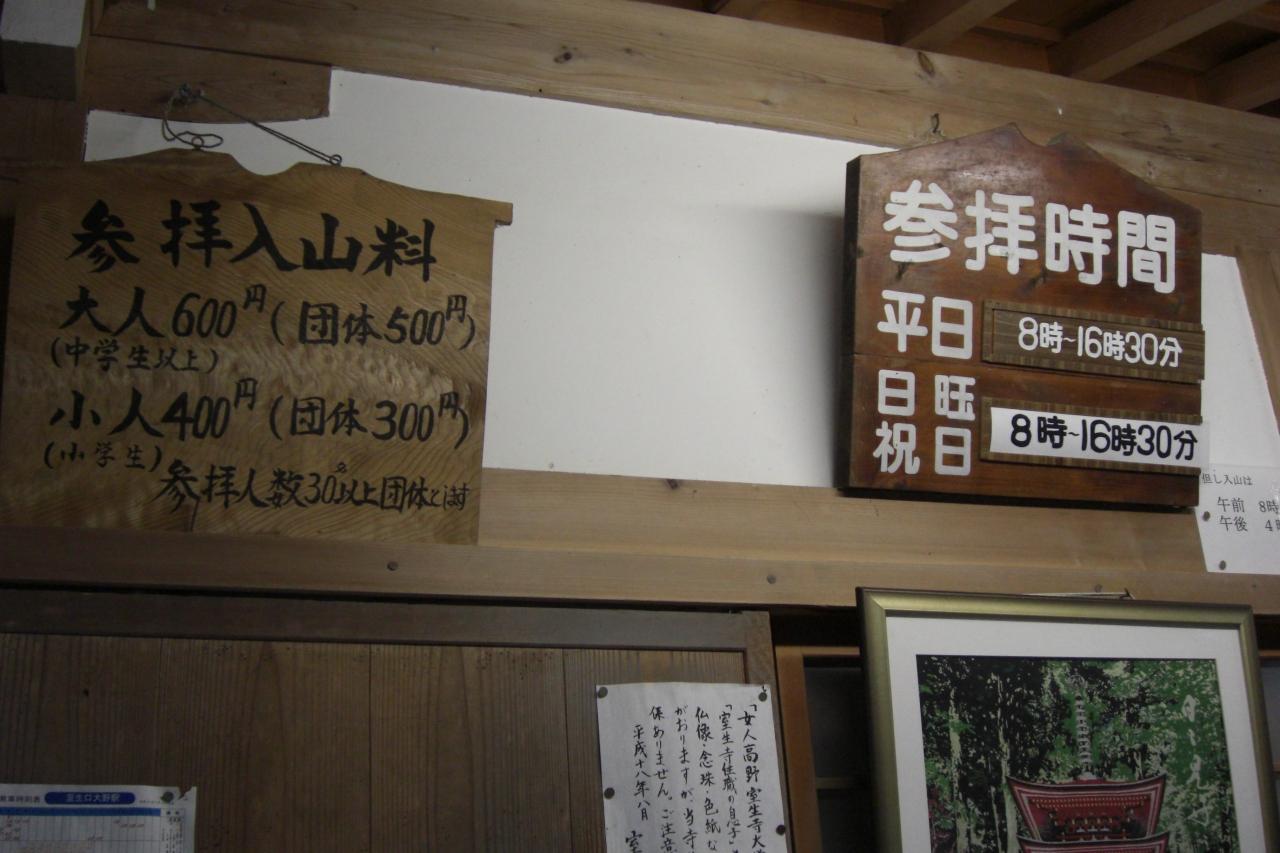 参拝入山料
大人600円(団体500円)
(中学生以上)
小人400円(団体300円)
(小学生)
参拝人数30名以上団体とします
参拝時間
平日 8時~16時30分
日曜
祝日
8時~16時30分
但し入山は
午前 8時
午後 4時
「女人高野室生寺大
「室生寺住職の息子」
仏像・念珠・色紙な
がおりますが、当寺
係ありません。ご注意
平成十八年八月
室
室生口大野駅